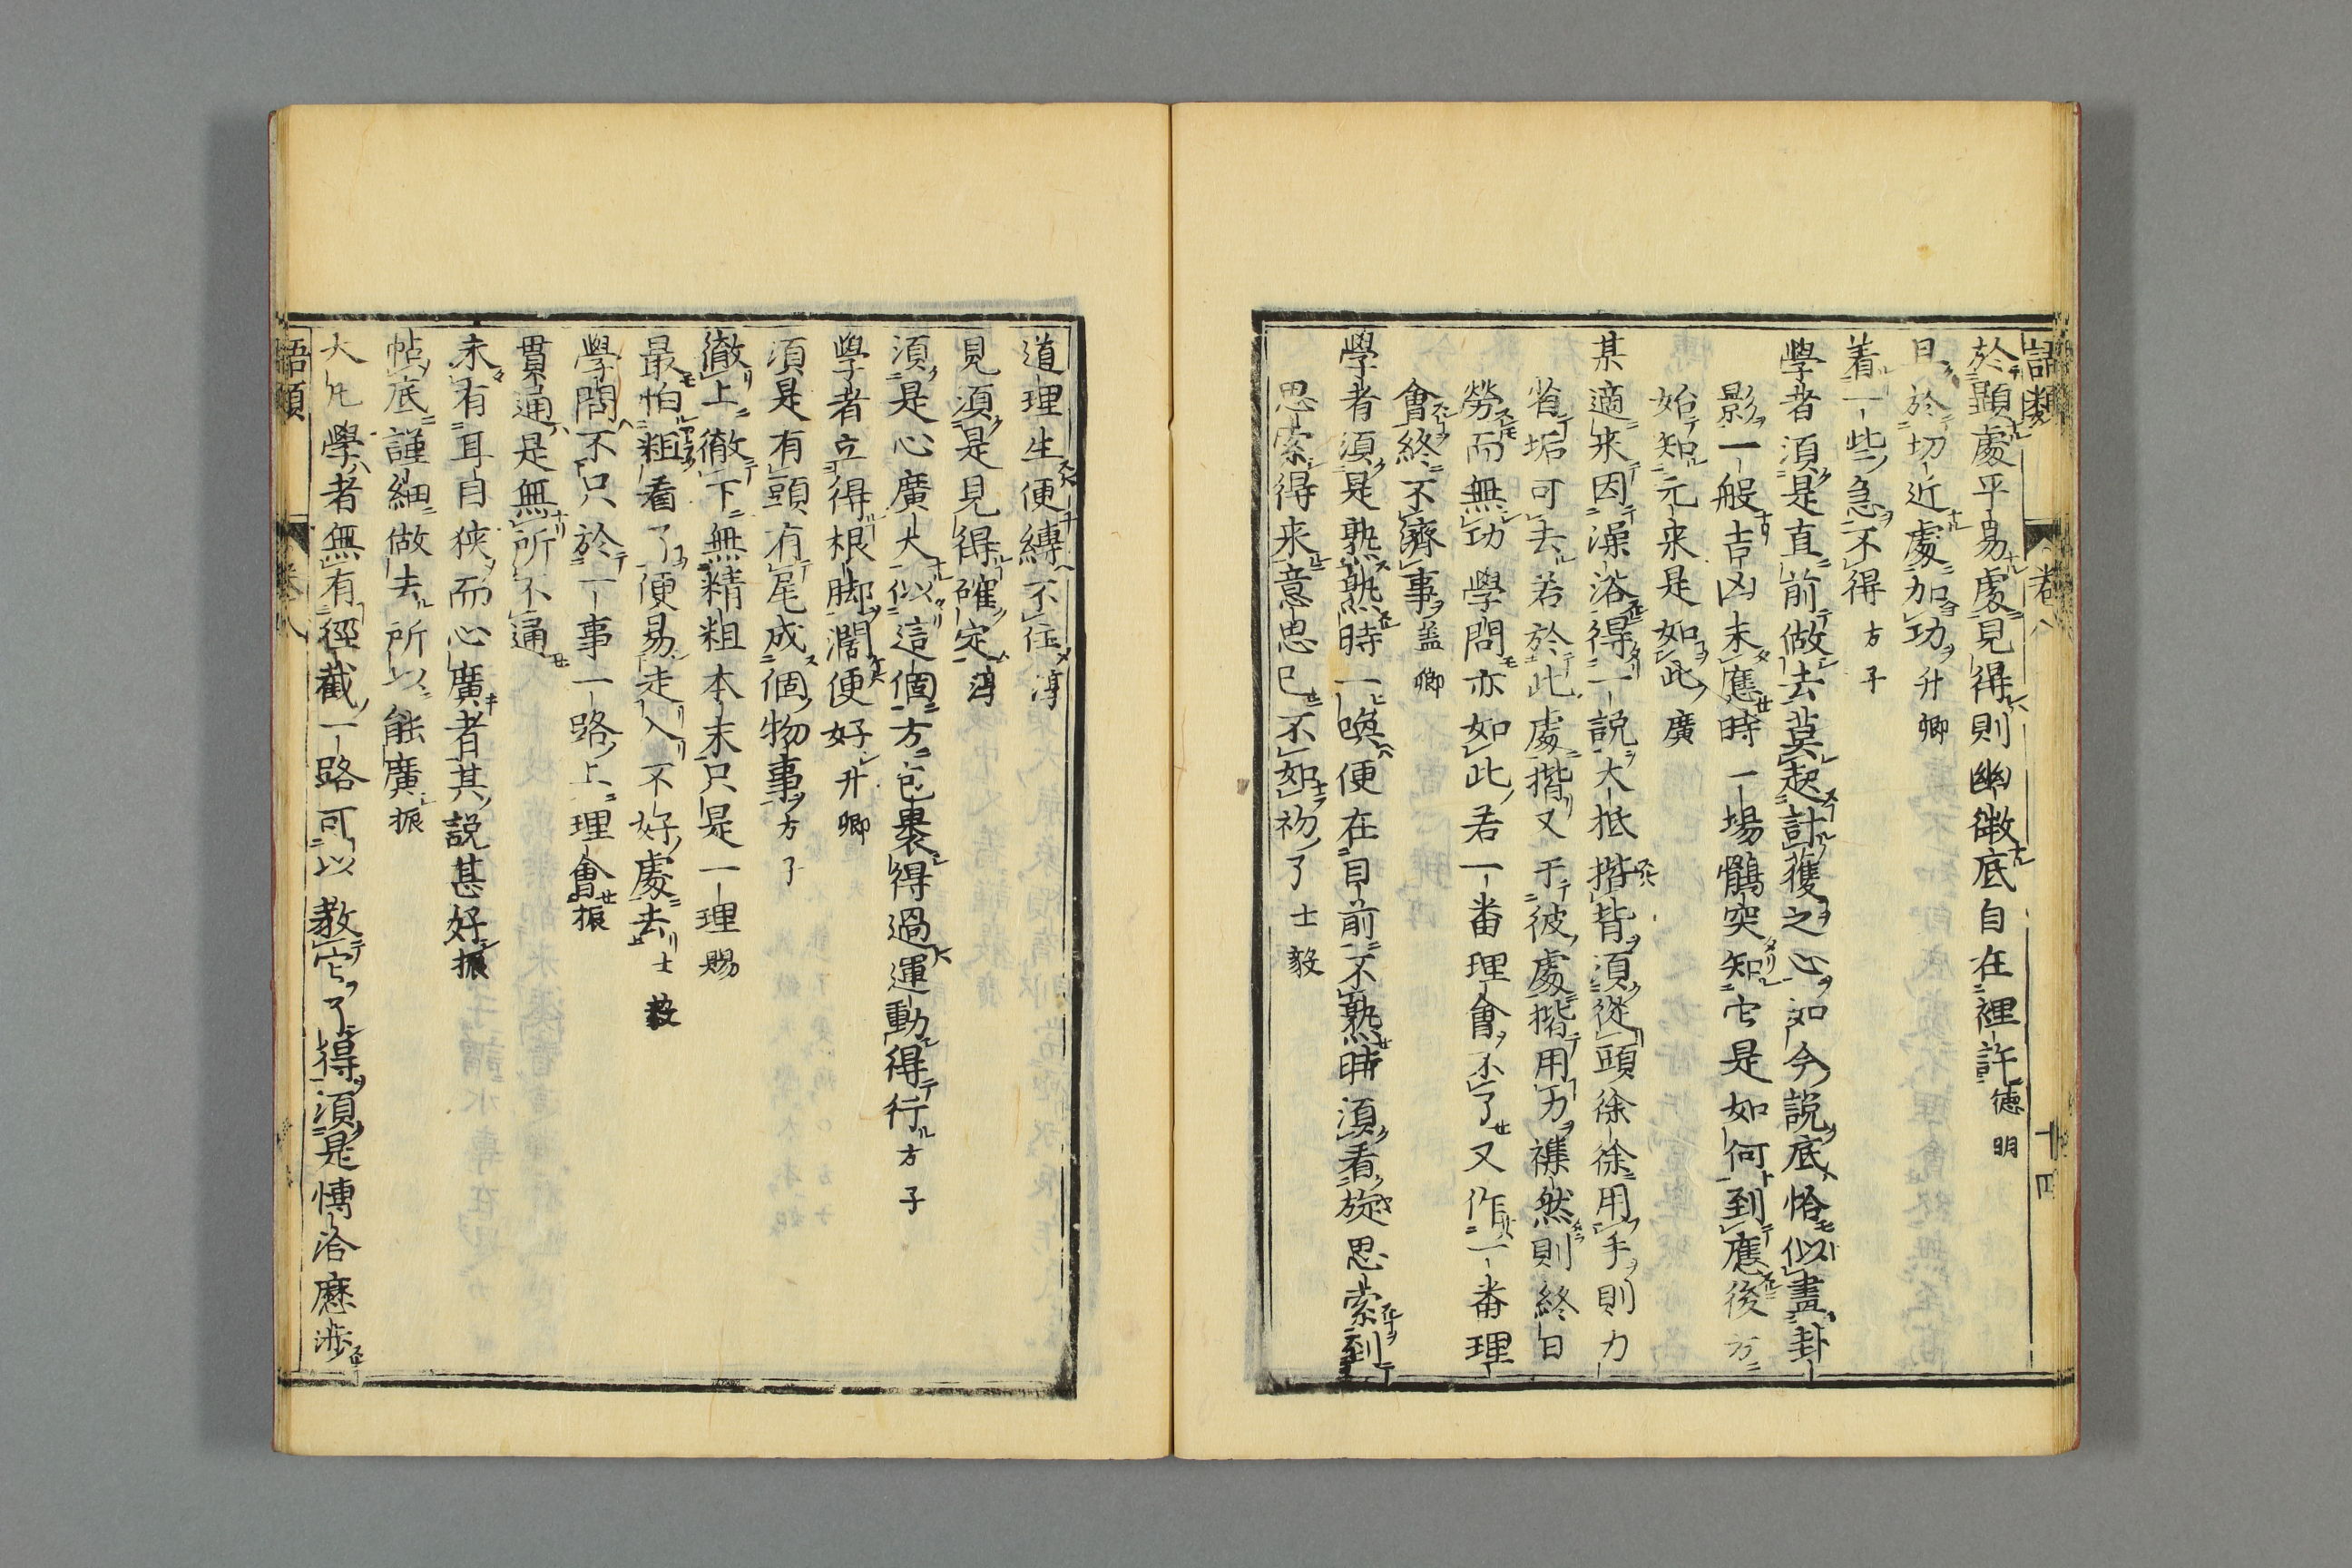 語類 卷八 十四
於顯處平易處見得則幽微底自在裡許德明
且於切近處加功升卿
着一些急不得方子
學者須是直前做去莫起計獲之心如今說底恰似畫卦
影一般吉凶未應時一場鶻突知它是如何到應後方
始知元来是如此廣
某適来因澡浴得一說大抵揩背須從頭徐徐用手則力
省垢可去若於此處揩又于彼處揩用力襍然則終日
勞而無功學問亦如此若一番理會不了又作一番理
會終不濟事盖卿
學者須是熟熟時一喚便在目前不熟時須着旋思索到
思索得来意思已不如初了士毅
道理生便縛不住淳
見須是見得確定淳
須是心廣大似這個方包裹得過運動得行方子
學者立得根脚濶便好升卿
須是有頭有尾成個物事方子
徹上徹下無精粗本末只是一理賜
最怕粗看了便易走入不好處去士毅
學問不只於一事一路上理會振
貫通是無所不通
未有耳目狭而心廣者其說甚好振
帖底謹細做去所以能廣振
大凡學者無有徑截一路可以教它了得須是博洽歷涉
語類 卷八